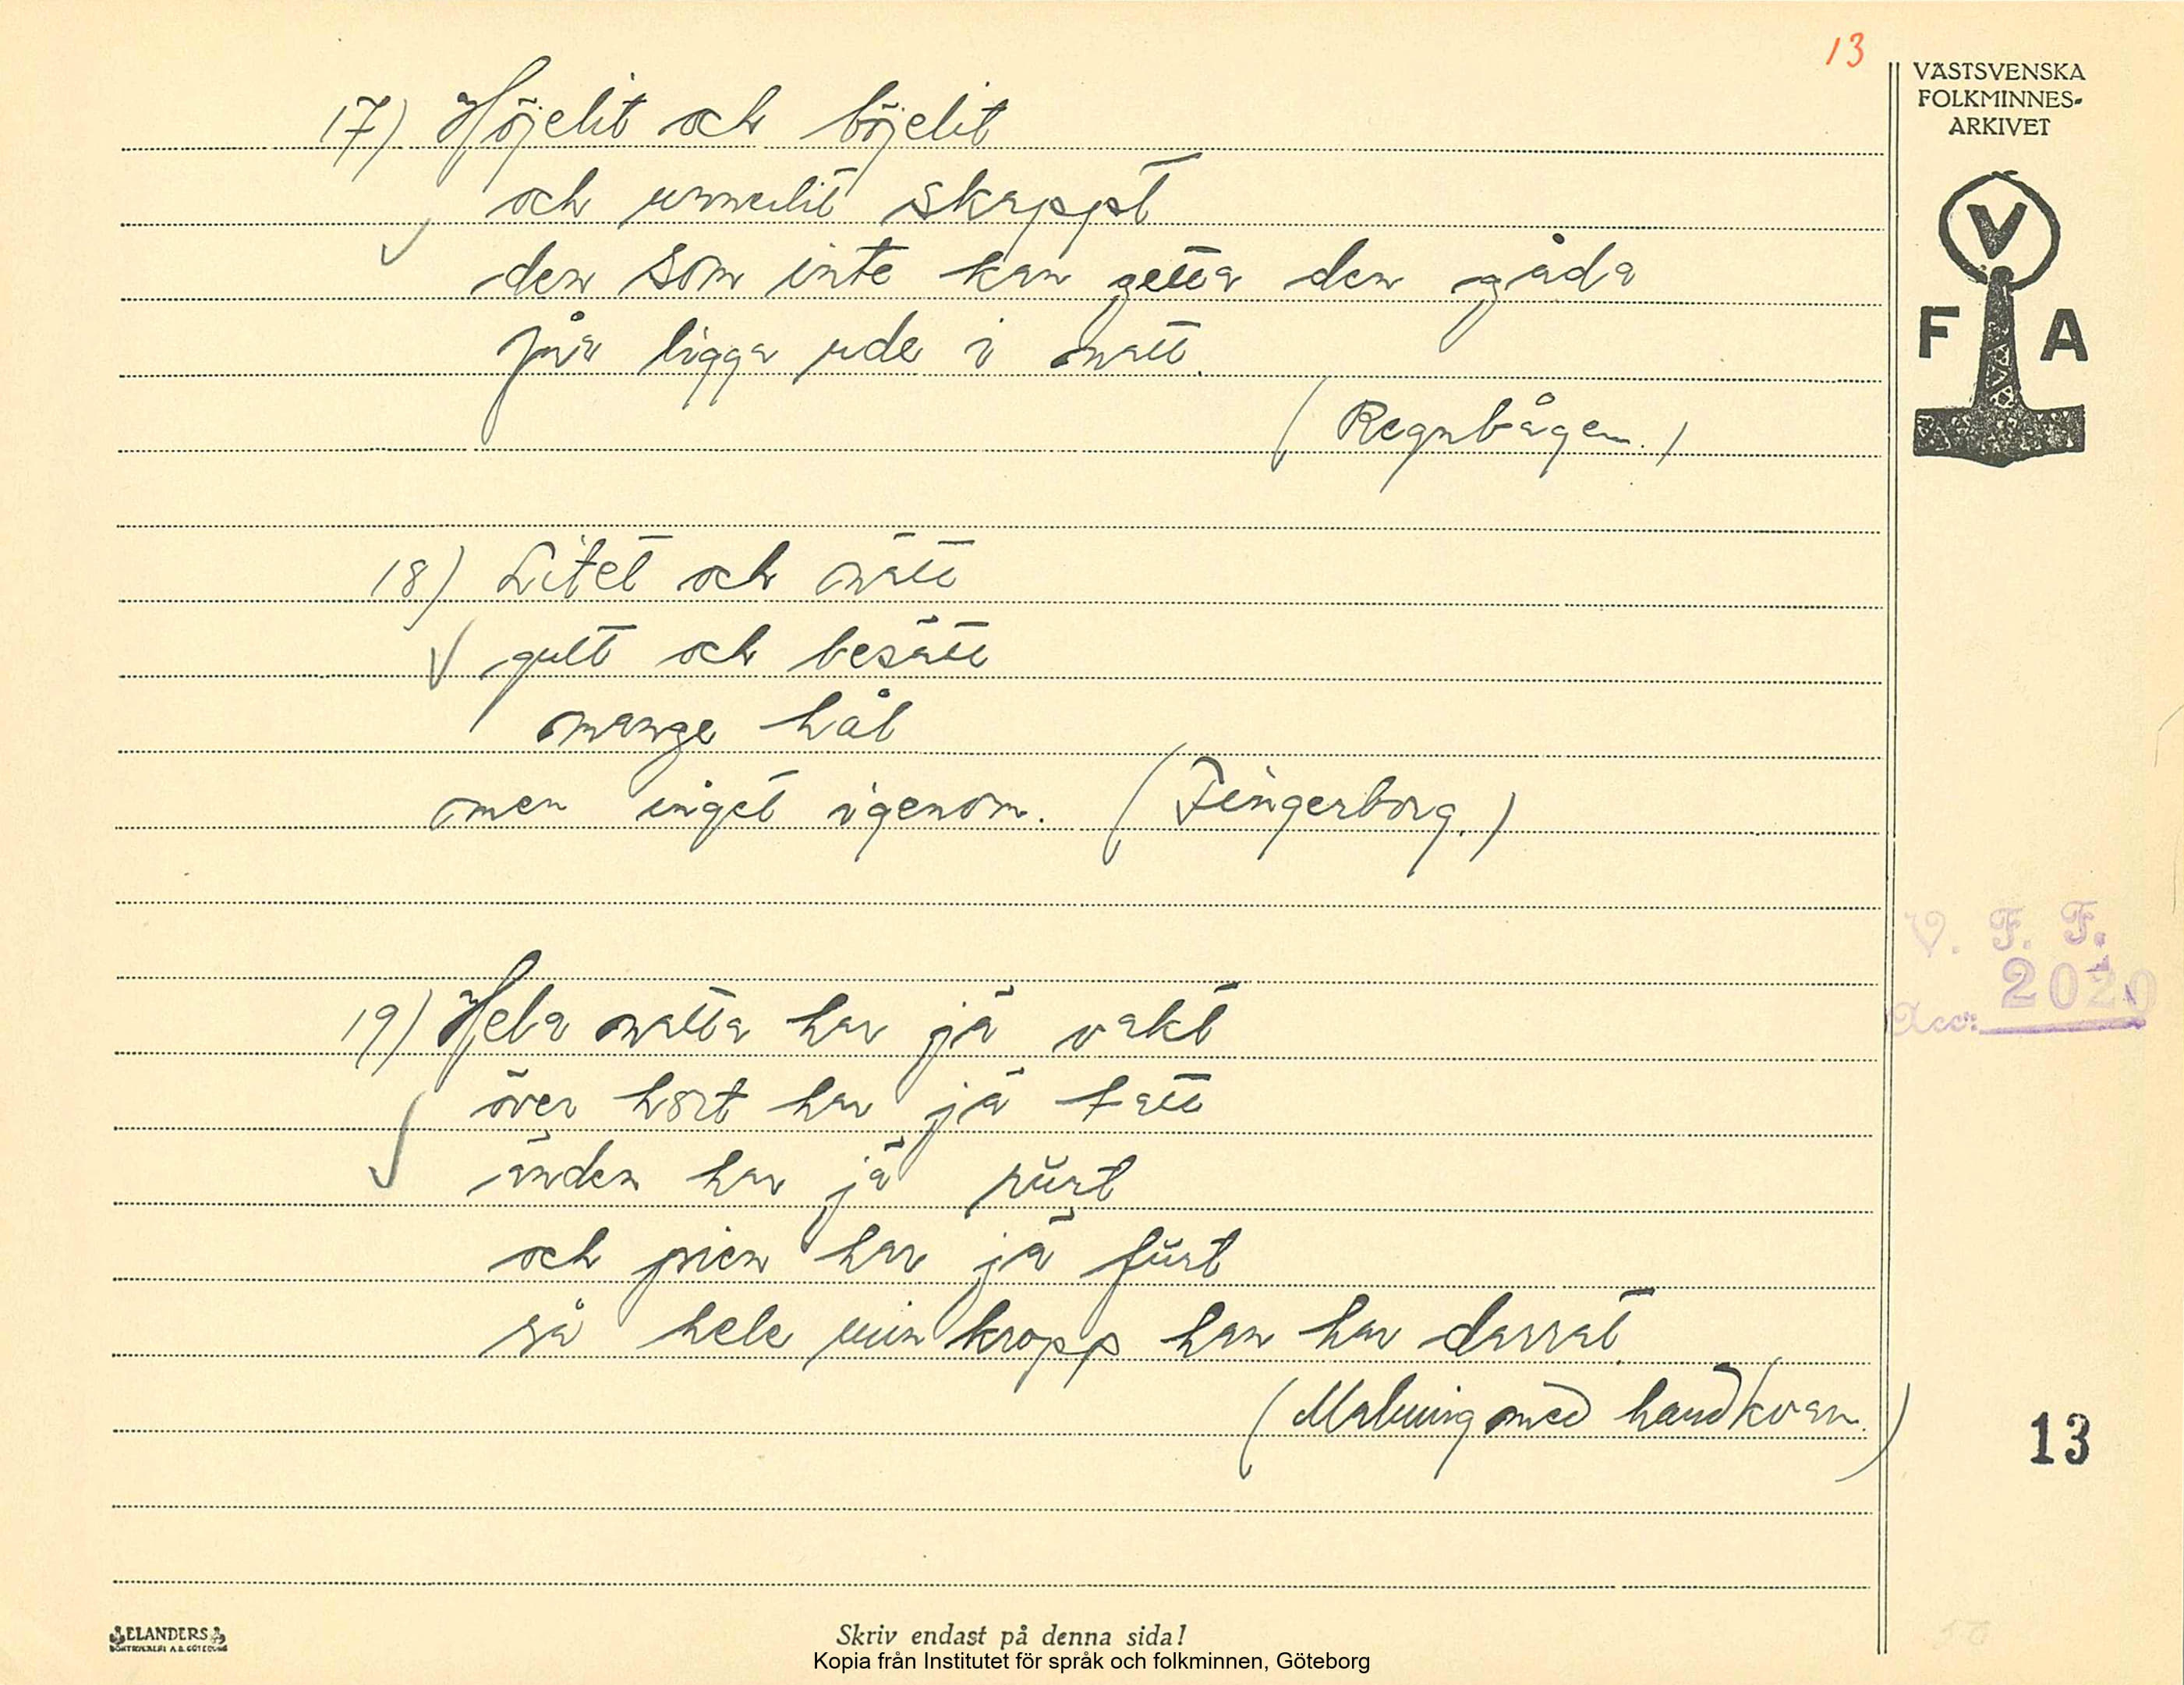 13
VÄSTSVENSKA
FOLKMINNES-
ARKIVET
V
F A
17) Höjelit och böjelit
och unnelit skappt
den som inte kan getta den gåda
får ligga ude i natt.
(Regnbågen.)
18) Litet och nätt
gult och besätt
mange hål
men inget igenom. (Fingerborg.)
V. F. F.
Acc. 2020
19) Hela natta har jä vakt
över hort har jä tatt
änden har jä rürt
och pien har jä fürt
så hele min kropp han har darrat
(Malning med handkvarn.)
13
ELANDERS
BOKTRYCKERI A.B. GÖTEBORG
Skriv endast på denna sida!
Kopia från Institutet för språk och folkminnen, Göteborg